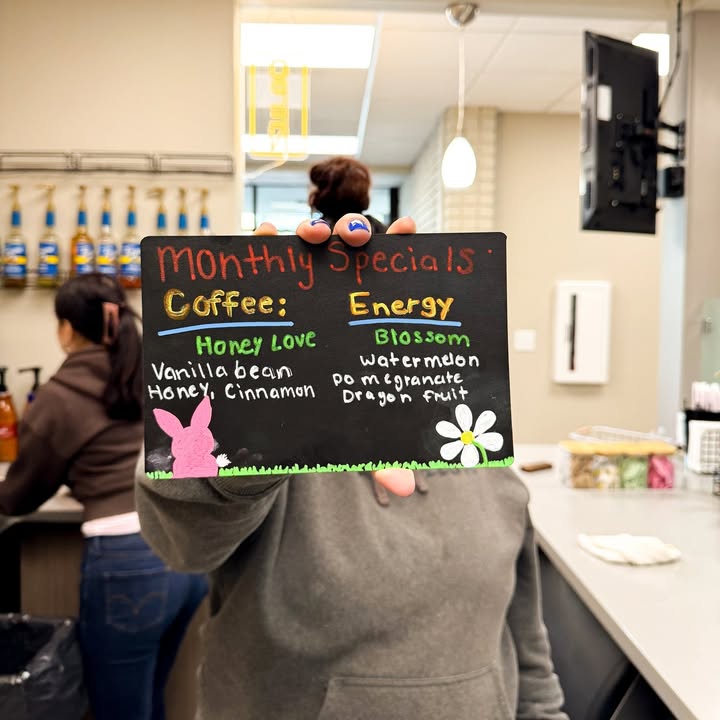 Monthly Specials
Coffee:
Honey Love
Vanilla bean
Honey, Cinnamon
Energy
Blossom
watermelon
pomegranate
Dragon fruit